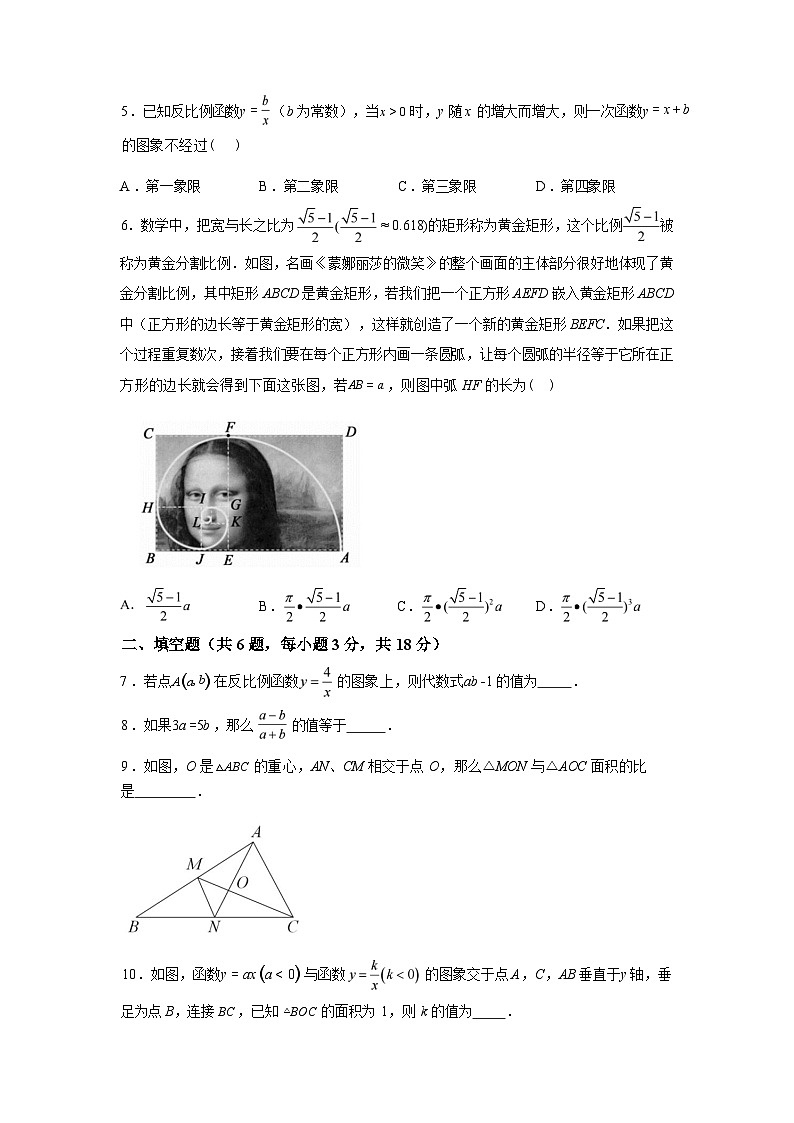 5．已知反比例函数y = b/x（b 为常数），当x > 0 时，y 随 x 的增大而增大，则一次函数y = x + b
的图象不经过(　)
A．第一象限　B．第二象限　C．第三象限　D．第四象限
6．数学中，把宽与长之比为(√5−1)/2((√5−1)/2≈0.618)的矩形称为黄金矩形，这个比例(√5−1)/2被
称为黄金分割比例．如图，名画《蒙娜丽莎的微笑》的整个画面的主体部分很好地体现了黄
金分割比例，其中矩形 ABCD 是黄金矩形，若我们把一个正方形 AEFD 嵌入黄金矩形 ABCD
中（正方形的边长等于黄金矩形的宽），这样就创造了一个新的黄金矩形 BEFC．如果把这
个过程重复数次，接着我们要在每个正方形内画一条圆弧，让每个圆弧的半径等于它所在正
方形的边长就会得到下面这张图，若AB = a，则图中弧 HF 的长为(　)
C F D
H I G
L K
B J E A
A．(√5−1)/2 a　B．π/2•(√5−1)/2 a　C．π/2•((√5−1)/2)²a　D．π/2•((√5−1)/2)³a
二、填空题（共 6 题，每小题 3 分，共 18 分）
7．若点A(a, b)在反比例函数y = 4/x 的图象上，则代数式ab -1 的值为_____．
8．如果3a =5b，那么 (a−b)/(a+b) 的值等于______．
9．如图，O 是△ABC 的重心，AN、CM 相交于点 O，那么△MON 与△AOC 面积的比
是_________．
A
M
O
B N C
10．如图，函数y = ax (a < 0)与函数 y = k/x (k < 0) 的图象交于点A，C，AB 垂直于y 轴，垂
足为点 B，连接 BC，已知 △BOC 的面积为 1，则 k 的值为_____．